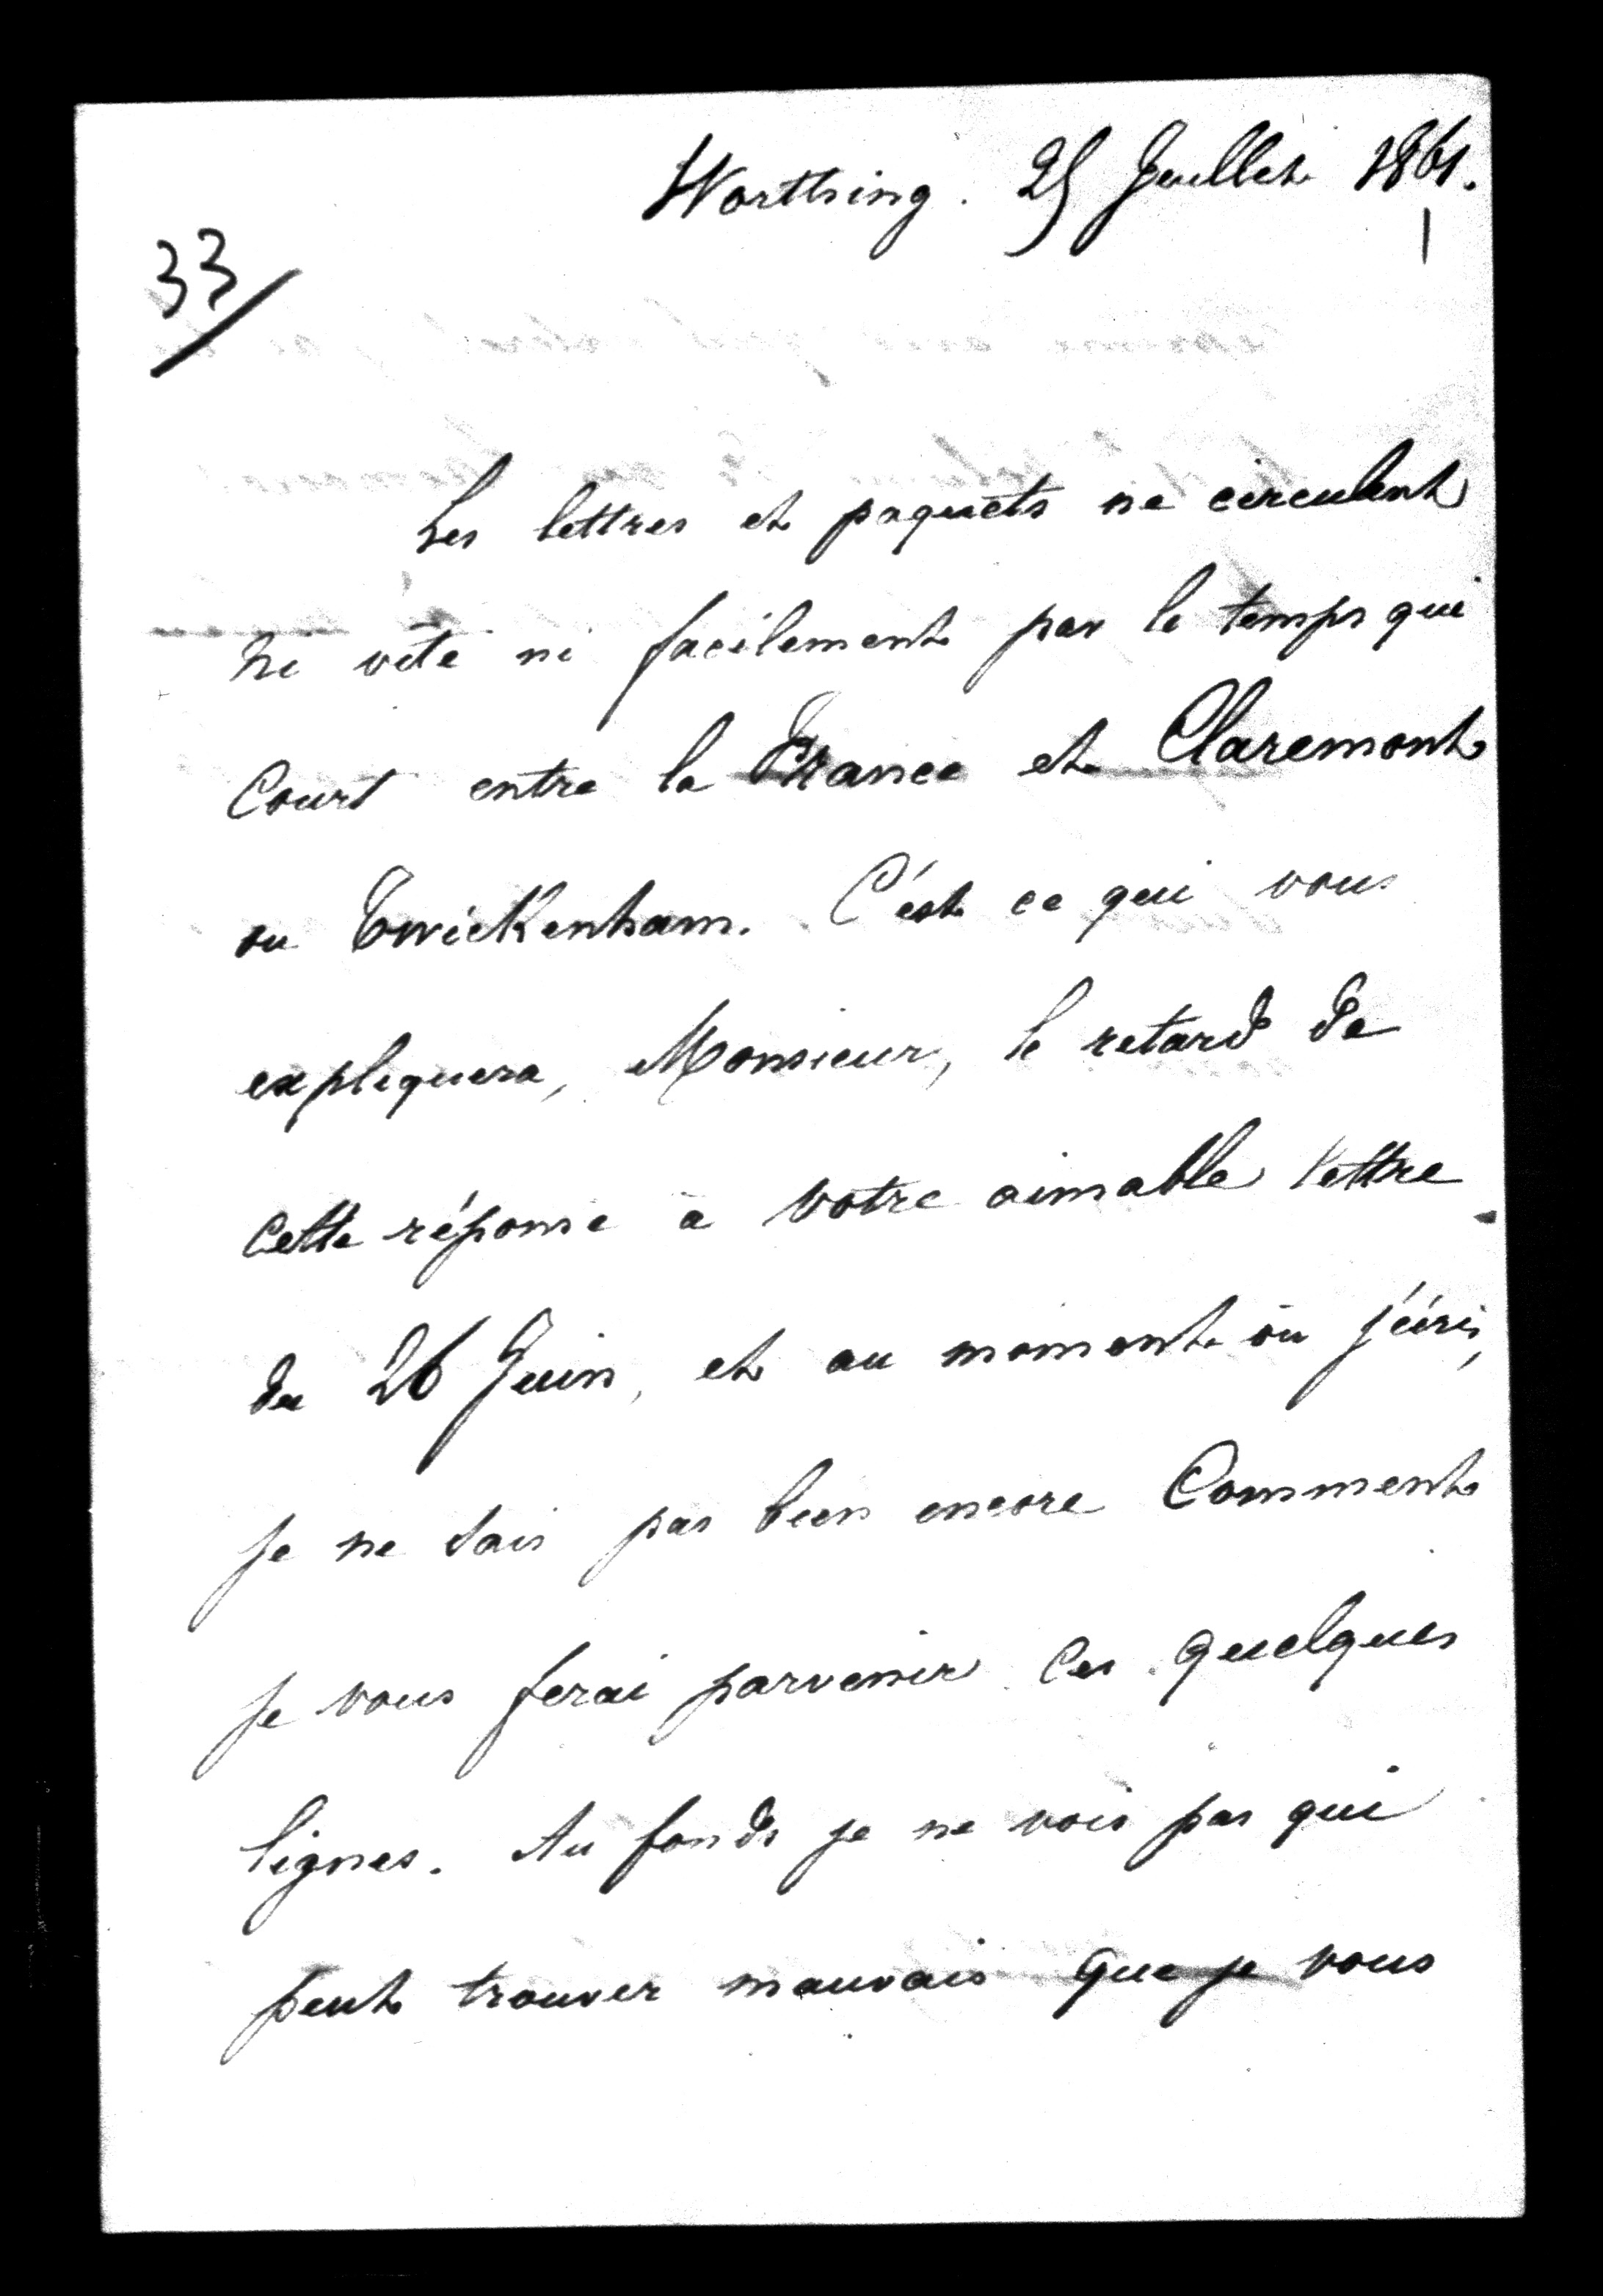 Worthing. 25 Juillet 1861.
33
Les lettres et paquets ne circulent
ni vite ni facilement par le temps qui
Court entre la France et Claremont
ou Twickenham. C'est ce qui vous
expliquera, Monsieur, le retard de
cette réponse à votre aimable lettre
du 26 Juin, et au moment où j'écris,
je ne sais pas bien encore Comment
je vous ferai parvenir ces quelques
lignes. Au fonds je ne vois pas qui
peut trouver mauvais que je vous